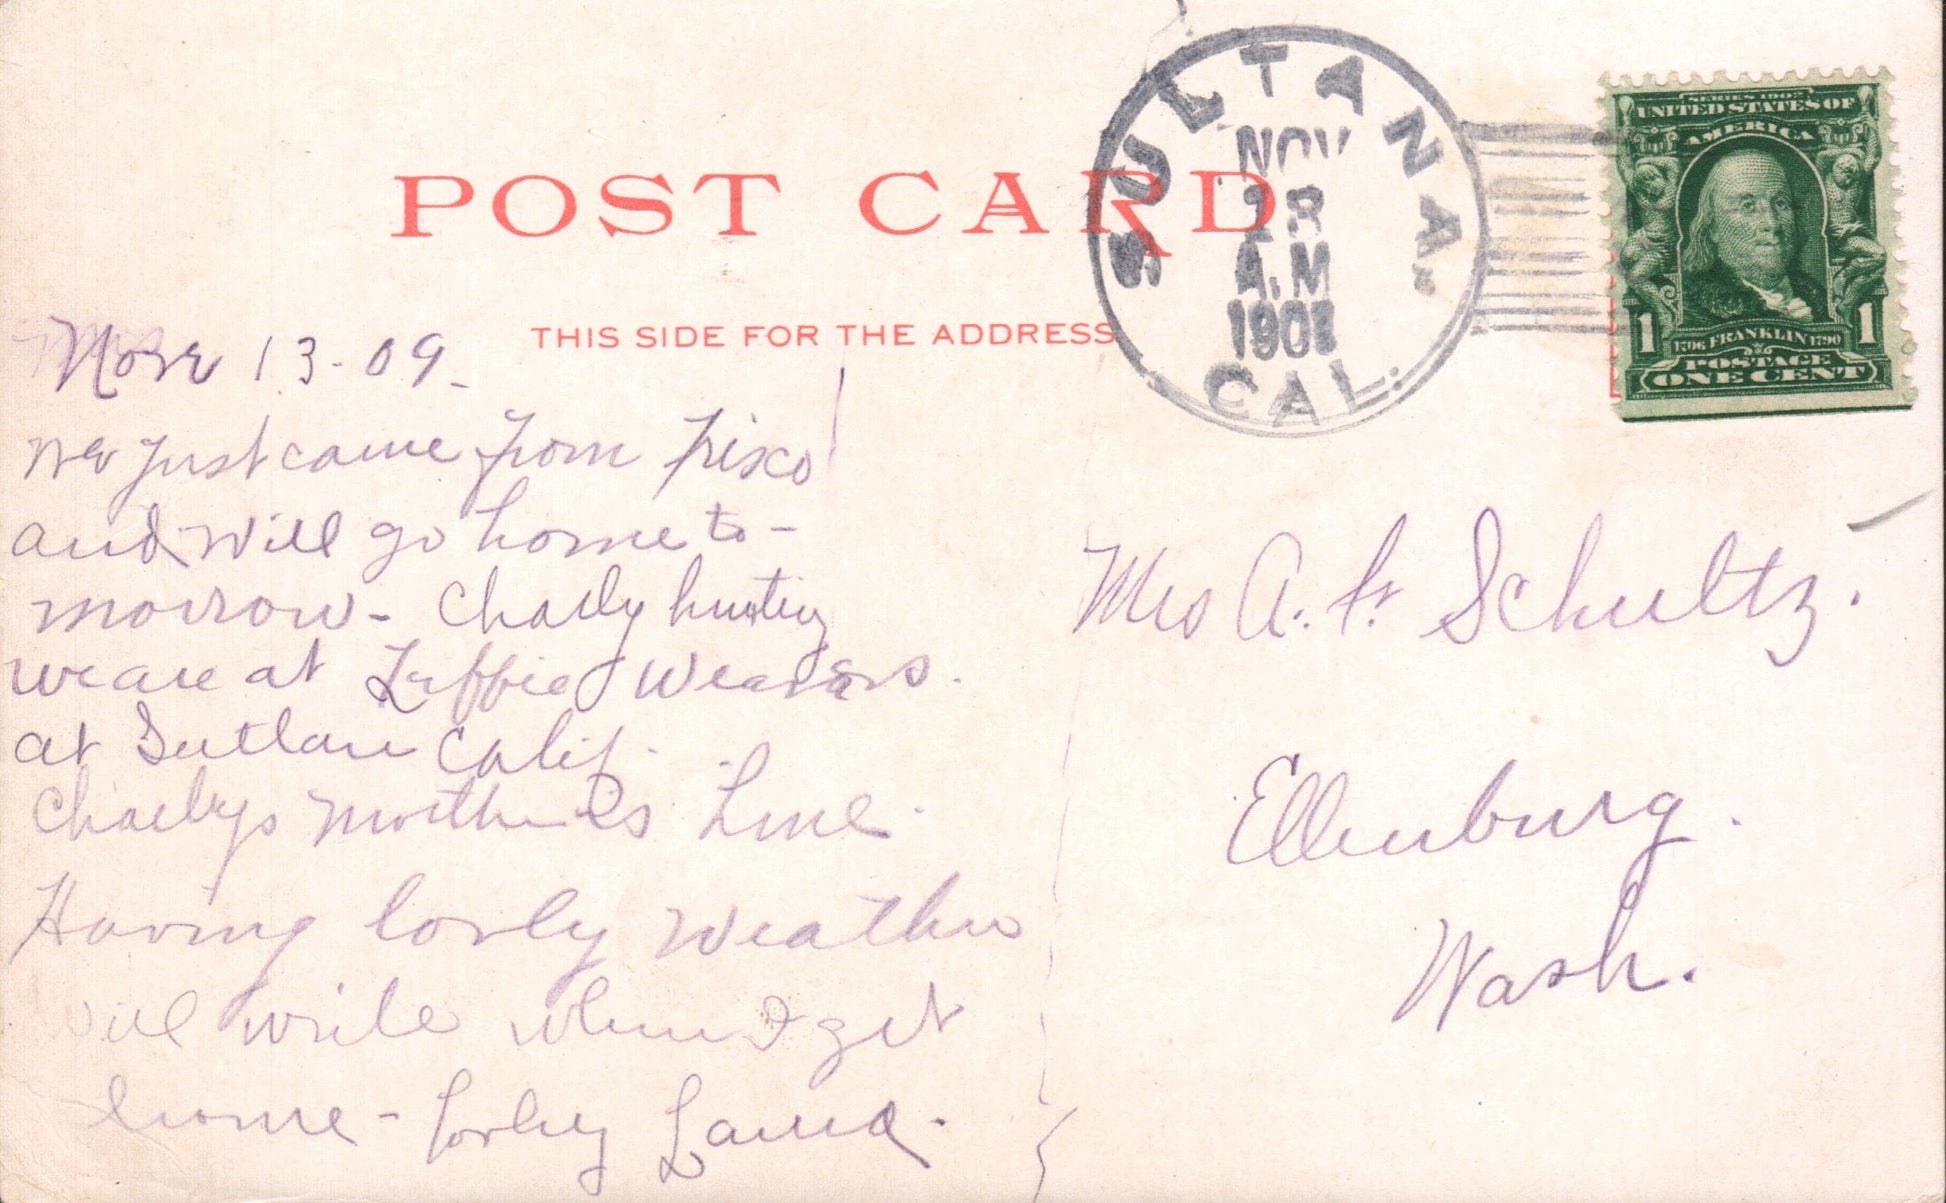 POST CARD
THIS SIDE FOR THE ADDRESS
SULTANA,
NOV
13
A.M
1908
CAL.
SERIES 1902
UNITED STATES OF
AMERICA
1706 FRANKLIN 1790
POSTAGE
1 ONE CENT 1
Nov 13-09-
We just came from Frisco
and will go home to-
morrow- Charly hunting
we are at Effie Weavers.
at Sultan Calif.
Charlys mothers
Having lovly weather
will write when I get
home - lovly Laura.
Mrs A. F. Schultz.
Ellenburg.
Wash.